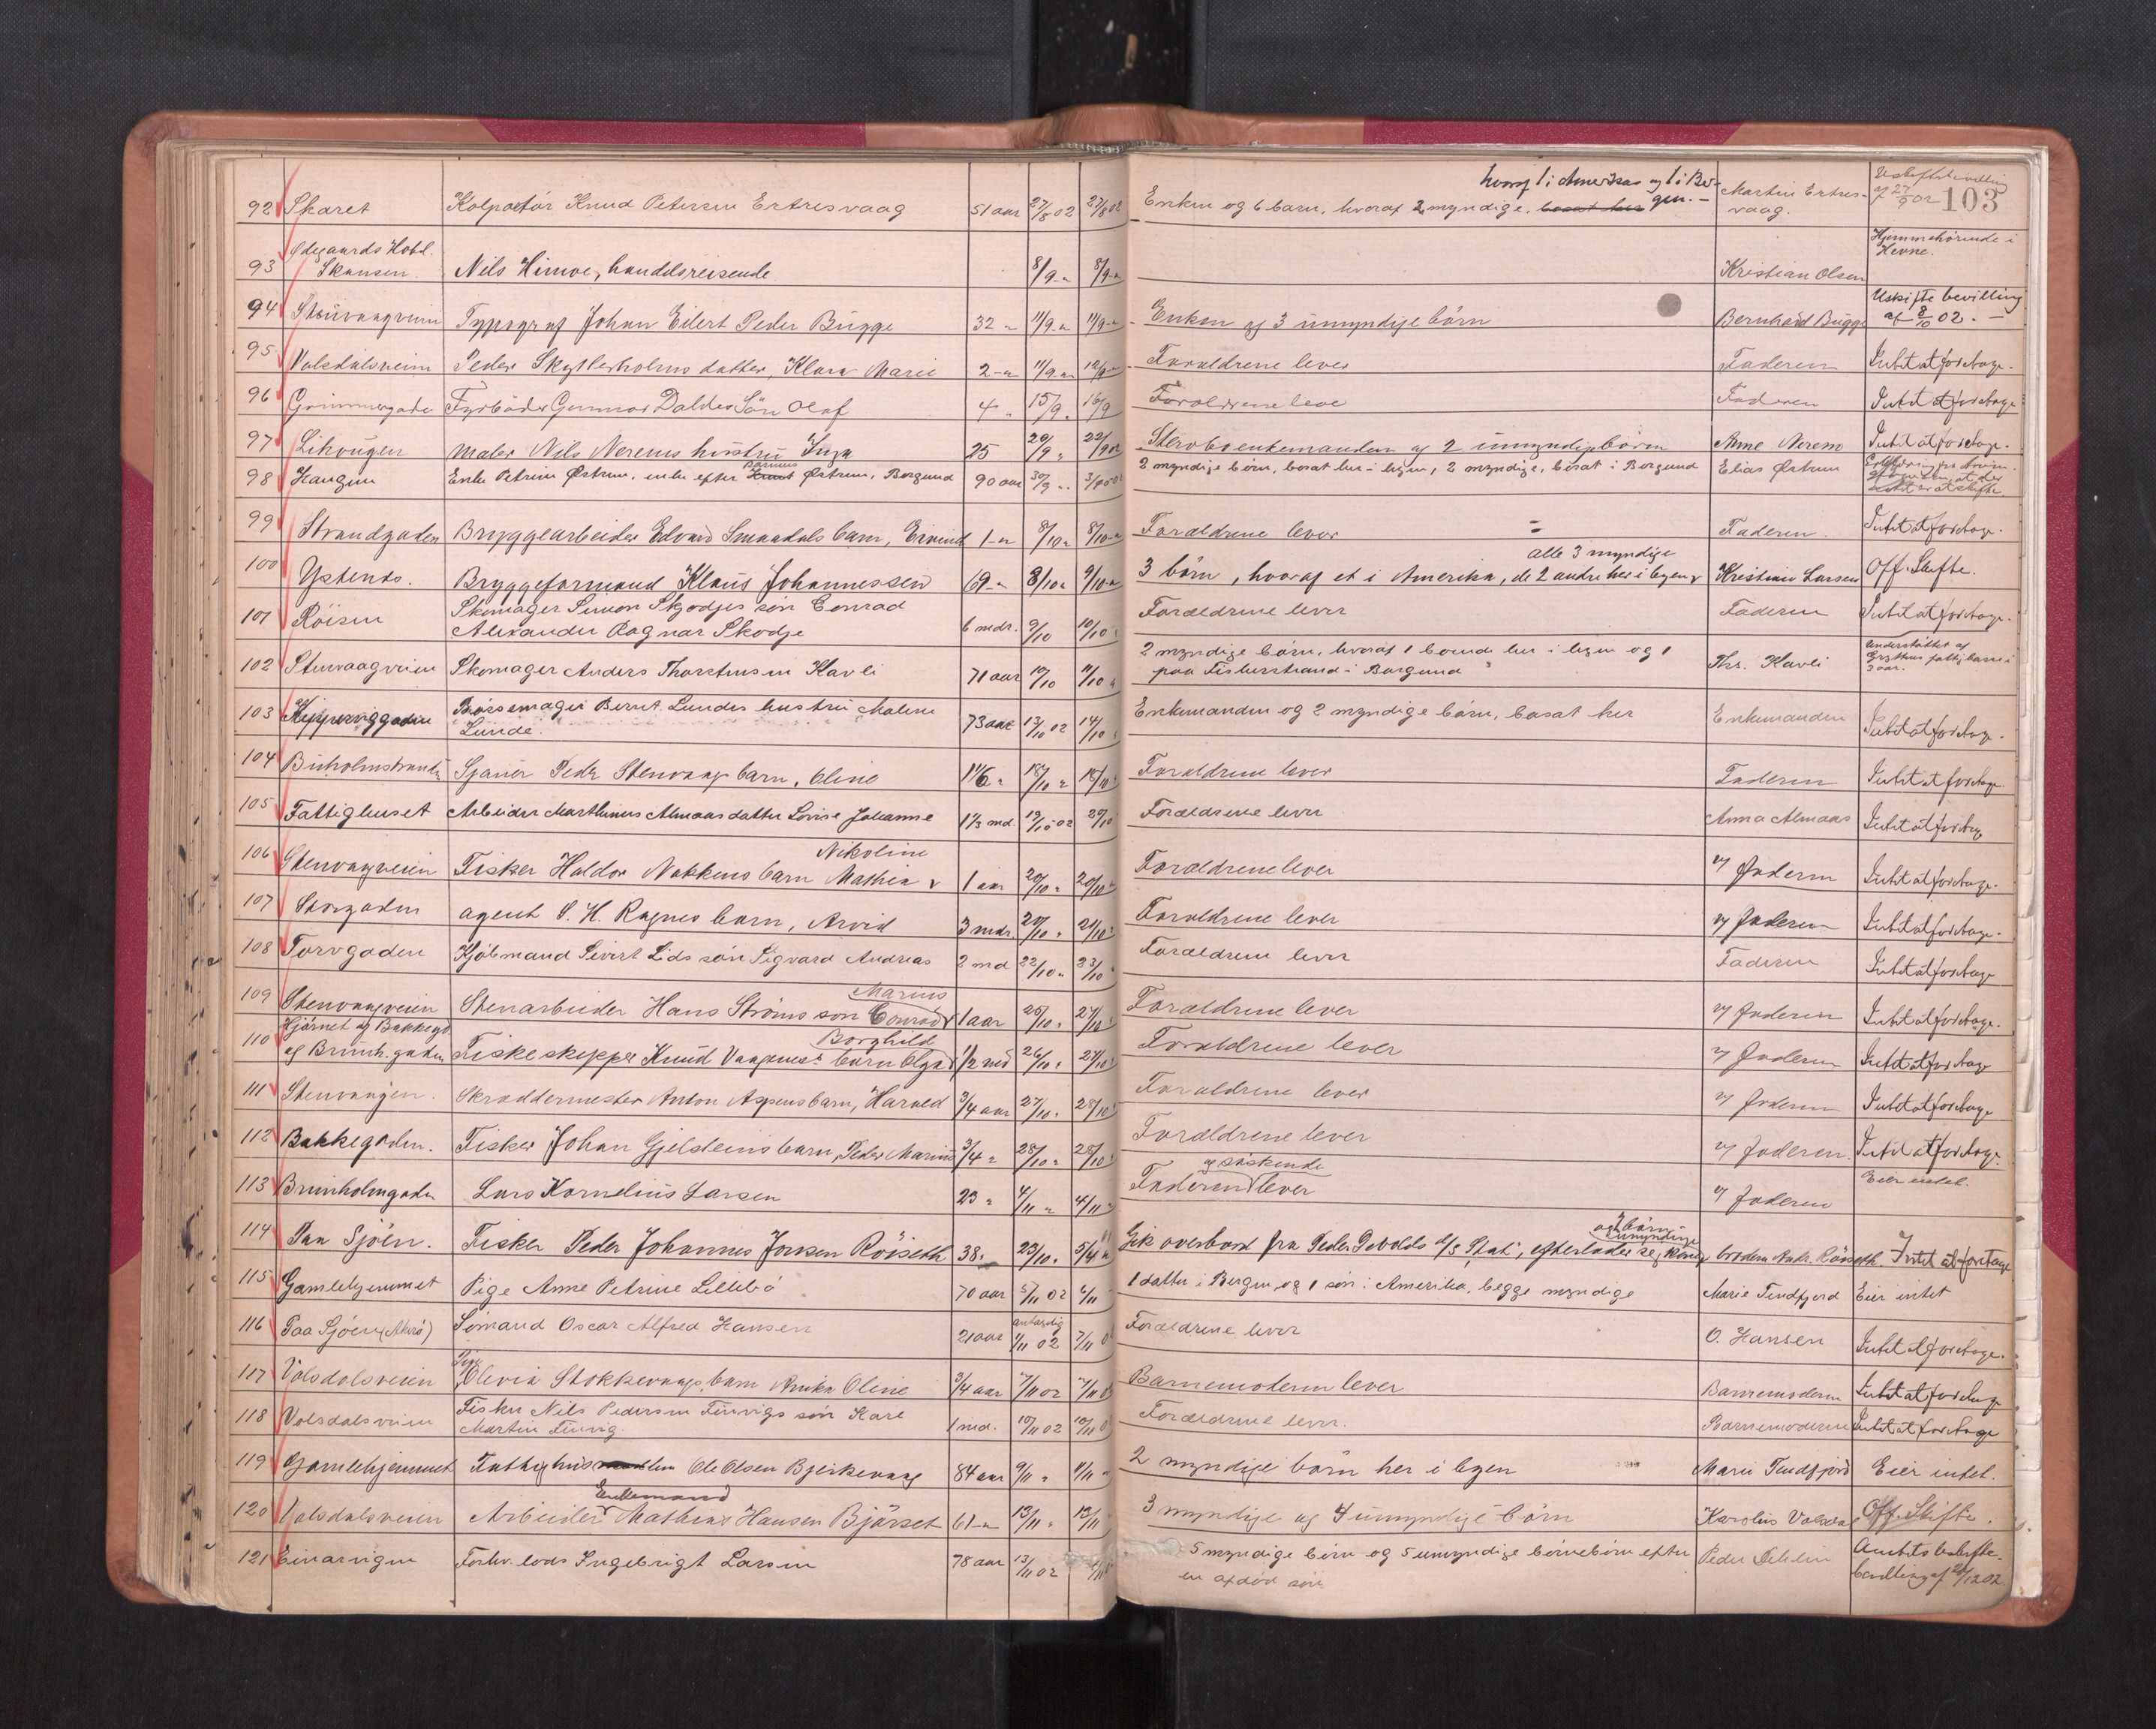 103
92 Skaret Kolportör Knud Petersen Ertresvaag 51 aar 27/8 02 27/8 02 Enken og 6 barn, hvoraf 2 myndige, hvoraf 1 i Amerika og 1 i Bergen. - Martin Ertresvaag. Uskiftebevilling af 27/9 02
93 Ødegaards Hotel Skansen. Nils Himoe, handelsreisende 8/9 " 8/9 " Kristian Olsen Hjemmehörende i Hevne.
94 Stenvaagveien Typograf Johan Eilert Peder Bugge 32 " 11/9 " 11/9 " Enken og 3 umyndige börn Bernhard Bugge Uskiftebevilling af 8/10 02. -
95 Volsdalsveien Peder Skytterholms datter, Klara Marie 2 " 11/9 " 12/9 " Forældrene lever Faderen Intet at foretage.
96 Grimmergada Fyrböder Gunnar Daldes Sön Olaf 4 " 15/9 " 16/9 Forældrene leve Faderen Intet at foretage.
97 Lihaugen Maler Nils Nerems hustru Inga 25 20/9 " 22/9 02 Sterboenkemanden og 2 umyndige börn Arne Nerem Intet at foretage.
98 Haugen Enke Petrine Østrem, enke efter Rasmus Østrem, Borgund 90 aar 30/9 " 3/10 02 2 myndige börn, bosat her i byen, 2 myndige, bosat i Borgund Elias Østrem
99 Strandgaden Bryggearbeider Edvard Smaadals barn, Eivind 1 " 8/10 " 8/10 " Forældrene lever Faderen Intet at foretage.
100 Ystenes. Bryggeformand Klaus Johannessen 69 " 8/10 " 9/10 " 3 börn, hvoraf et i Amerika, de 2 andre her i byen, alle 3 myndige Kristian Larsen Off. Skifte.
101 Röisen Skomager Simon Skodjes sön Conrad
Alexander Ragnar Skodje 6 mdr. 9/10 10/10 Forældrene lever Faderen Intet at foretage.
102 Stenvaagveien Skomager Anders Thorstensen Kavli 71 aar 10/10 11/10 " 2 myndige börn, hvoraf 1 boende her i byen og 1
paa Fiskerstrand i Borgund Ths. Kavli Understöttet af fattigkasse i 3 aar.
103 Kipperviggaden Börsemager Bernt Lundes hustru Malene
Lunde. 73 aar 13/10 02 14/10 Enkemanden og 2 myndige börn, bosat her Enkemanden Intet at foretage.
104 Buholmstranden Sjauer Peder Stenvaags barn, Oline 18/10 " 18/10 Forældrene lever Faderen Intet at foretage.
105 Fattighuset Arbeider Marthinus Almaas datter Lovise Johanne 1 1/3 md 19/10 02 20/10 Forældrene lever Anna Almaas Intet at foretage
106 Stenvaagveien Fisker Haldor Nakkens barn Mathea Nikoline 1 aar 20/10 " 20/10 " Forældrene lever v/ Faderen Intet at foretage.
107 Storgaden agent S. H. Ragnes barn, Arvid 3 mdr. 20/10 " 21/10 Forældrene lever v/ Faderen Intet at foretage.
108 Torvgaden Kjöbmand Sivert Lids sön Sigvard Andreas 2 md 22/10 " 23/10 Forældrene lever Faderen Intet at foretage
109 Stenvaagveien Stenarbeider Hans Ströms sön Conrad Marius 1 aar 25/10 " 27/10 Forældrene lever v/ Faderen Intet at foretage.
110 Hjörnet af Bakkegd. og Brunh. gaden Fiskeskipper Knud Vaagenes' barn Olga Borghild 1/2 md 26/10 " 27/10 Forældrene lever v/ Faderen Intet at foretage
111 Stenvaagen. Skræddermester Anton Aspens barn, Harald 3/4 aar 27/10 " 28/10 Forældrene lever v/ Faderen Intet at foretage
112 Bakkegaden. Fisker Johan Gjelsteins barn, Peder Marius 3/4 " 28/10 " 28/10 Forældrene lever v/ Faderen. Intet at foretage.
113 Brunholmgaden Lars Kornelius Larsen 23 " 4/11 " 4/11 " Faderen og söskende lever v/ Faderen Eier intet.
114 Paa Sjöen. Fisker Peder Johannes Jonsen Röiseth 38 " 23/10 " 5/11 " Gik overbord fra Peder Devolds d/s "Stat", efterlader sig Kone og 2 umyndige börn broderen Röiseth. Intet at foretage
115 Gamlehjemmet Pige Anne Petrine Lillebö 70 aar 5/11 02 6/11 1 datter i Bergen og 1 sön i Amerika, begge myndige Marie Tindfjord Eier intet
116 Paa Sjöen (Akrö) Sömand Oscar Alfred Hansen 21 aar antagelig 1/11 02 7/11 Forældrene lever O. Hansen Intet at foretage.
117 Volsdalsveien Pige Olevia Stokkevaags barn Anika Oline 3/4 aar 7/11 02 7/11 0 Barnemoderen lever Barnemoderen Intet at foretage
118 Volsdalsveien Fisker Nils Pedersen Finvigs sön Kare
Martin Finvig. 1 md. 10/11 02 10/11 0 Forældrene lever. Barnemoderen Intet at foretage
119 Gamlehjemmet Fattighus Ole Olsen Bjerkevaag 84 aar 9/11 " 11/11 " 2 myndige börn her i byen Marie Tindfjord Eier intet.
120 Volsdalsveien Arbeider Enkemand Mathias Hansen Björset 61 " 13/11 " 13/11 3 myndige og 4 umyndige börn Karolius Volsdal Off. Skifte.
121 Einarvigen Forhv. lods Ingebrigt Larsen 78 aar 13/11 02 5 myndige börn og 5 umyndige börnebörn efter
en afdöd sön Peder